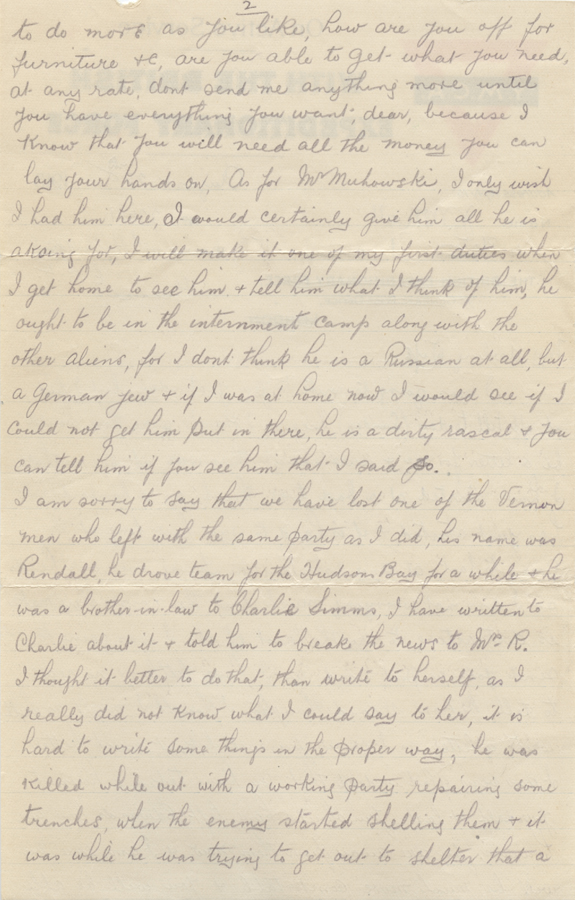 2
to do more as you like, how are you off for
furniture &c, are you able to get what you need,
at any rate, dont send me anything more until
you have everything you want, dear, because I
know that you will need all the money you can
lay your hands on, As for Mr Muhowski, I only wish
I had him here, I would certainly give him all he is
asking for, I will make it one of my first duties when
I get home to see him & tell him what I think of him, he
ought to be in the internment camp along with the
other aliens, for I dont think he is a Russian at all, but
a German jew & if I was at home now I would see if I
could not get him put in there, he is a dirty rascal & you
can tell him if you see him that I said so.
I am sorry to say that we have lost one of the Vernon
men who left with the same party as I did, his name was
Rendall, he drove team for the Hudsons Bay for a while & he
was a brother-in-law to Charlie Simms, I have written to
Charlie about it & told him to break the news to Mrs R.
I thought it better to do that, than write to herself, as I
really did not know what I could say to her, it is
hard to write some things in the proper way, he was
killed while out with a working party repairing some
trenches, when the enemy started shelling them & it
was while he was trying to get out to shelter that a